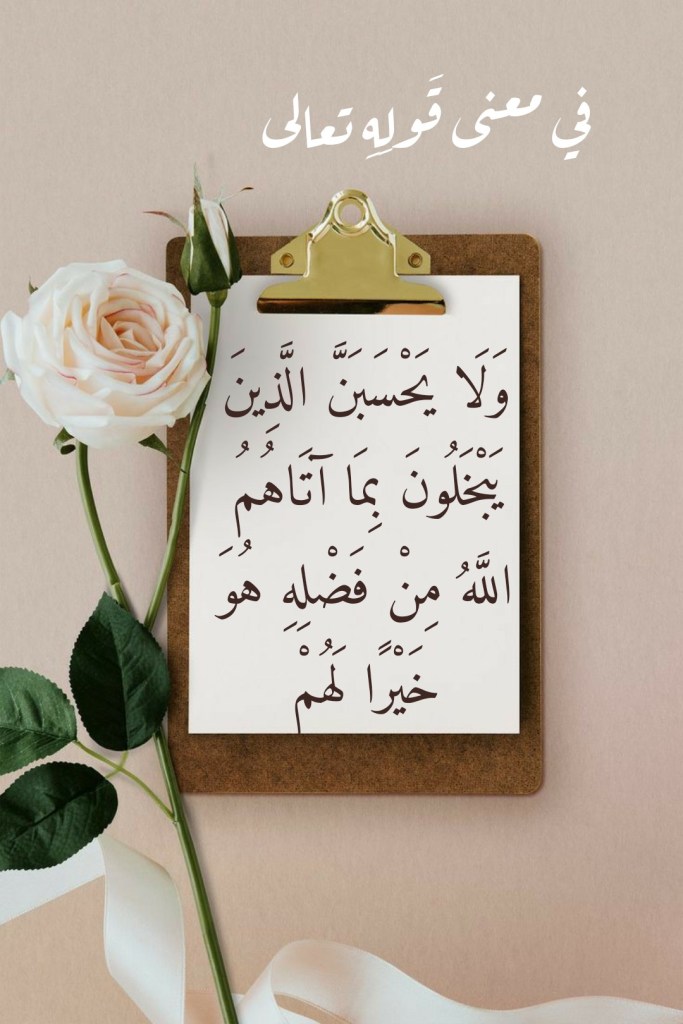 في معنى قَولِهِ تعالى
وَلَا يَحْسَبَنَّ الَّذِينَ
يَبْخَلُونَ بِمَا آتَاهُمُ
اللَّهُ مِنْ فَضْلِهِ هُوَ
خَيْرًا لَهُمْ